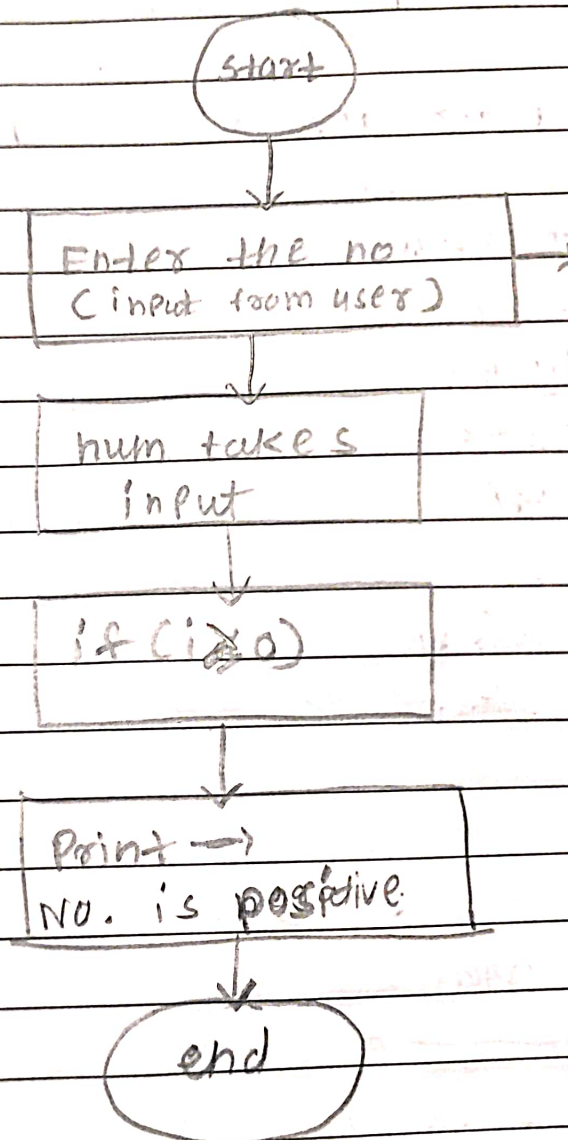 start
Enter the no.
(input from user)
num takes
input
if (i 0)
Print →
No. is positive.
end